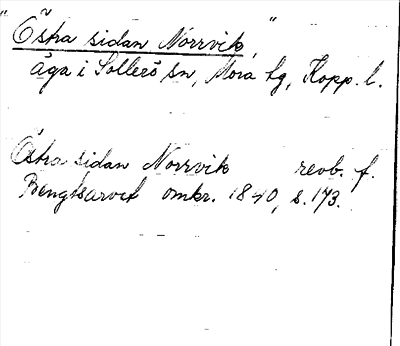 "Östra sidan Norrvik,"
äga i Sollerö sn, Mora tg, Kopp. l.
Östra sidan Norrvik revb. f.
Bengtsarvet omkr. 1840, s. 173.